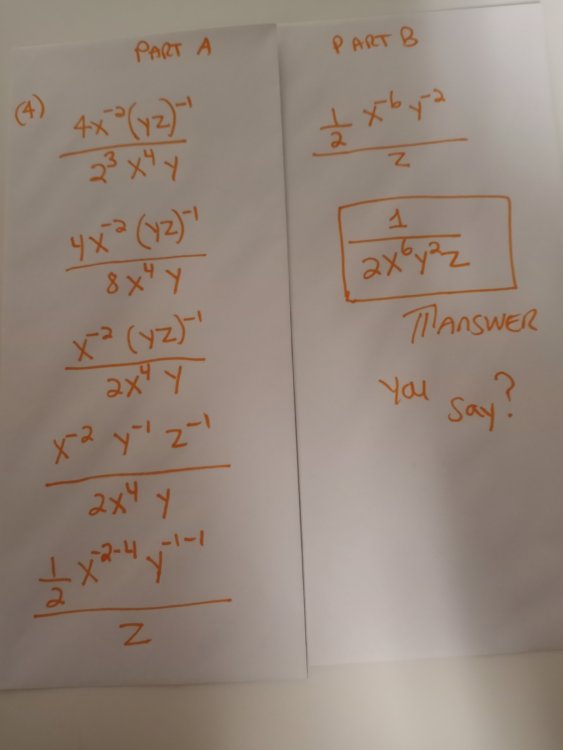 PART A
(4)
4x⁻²(yz)⁻¹
2³ x⁴ y
4x⁻² (yz)⁻¹
8x⁴ y
x⁻² (yz)⁻¹
2x⁴ y
x⁻² y⁻¹ z⁻¹
2x⁴ y
1/2 x⁻²⁻⁴ y⁻¹⁻¹
z
PART B
1/2 x⁻⁶ y⁻²
z
1
2x⁶y²z
ANSWER
you say?